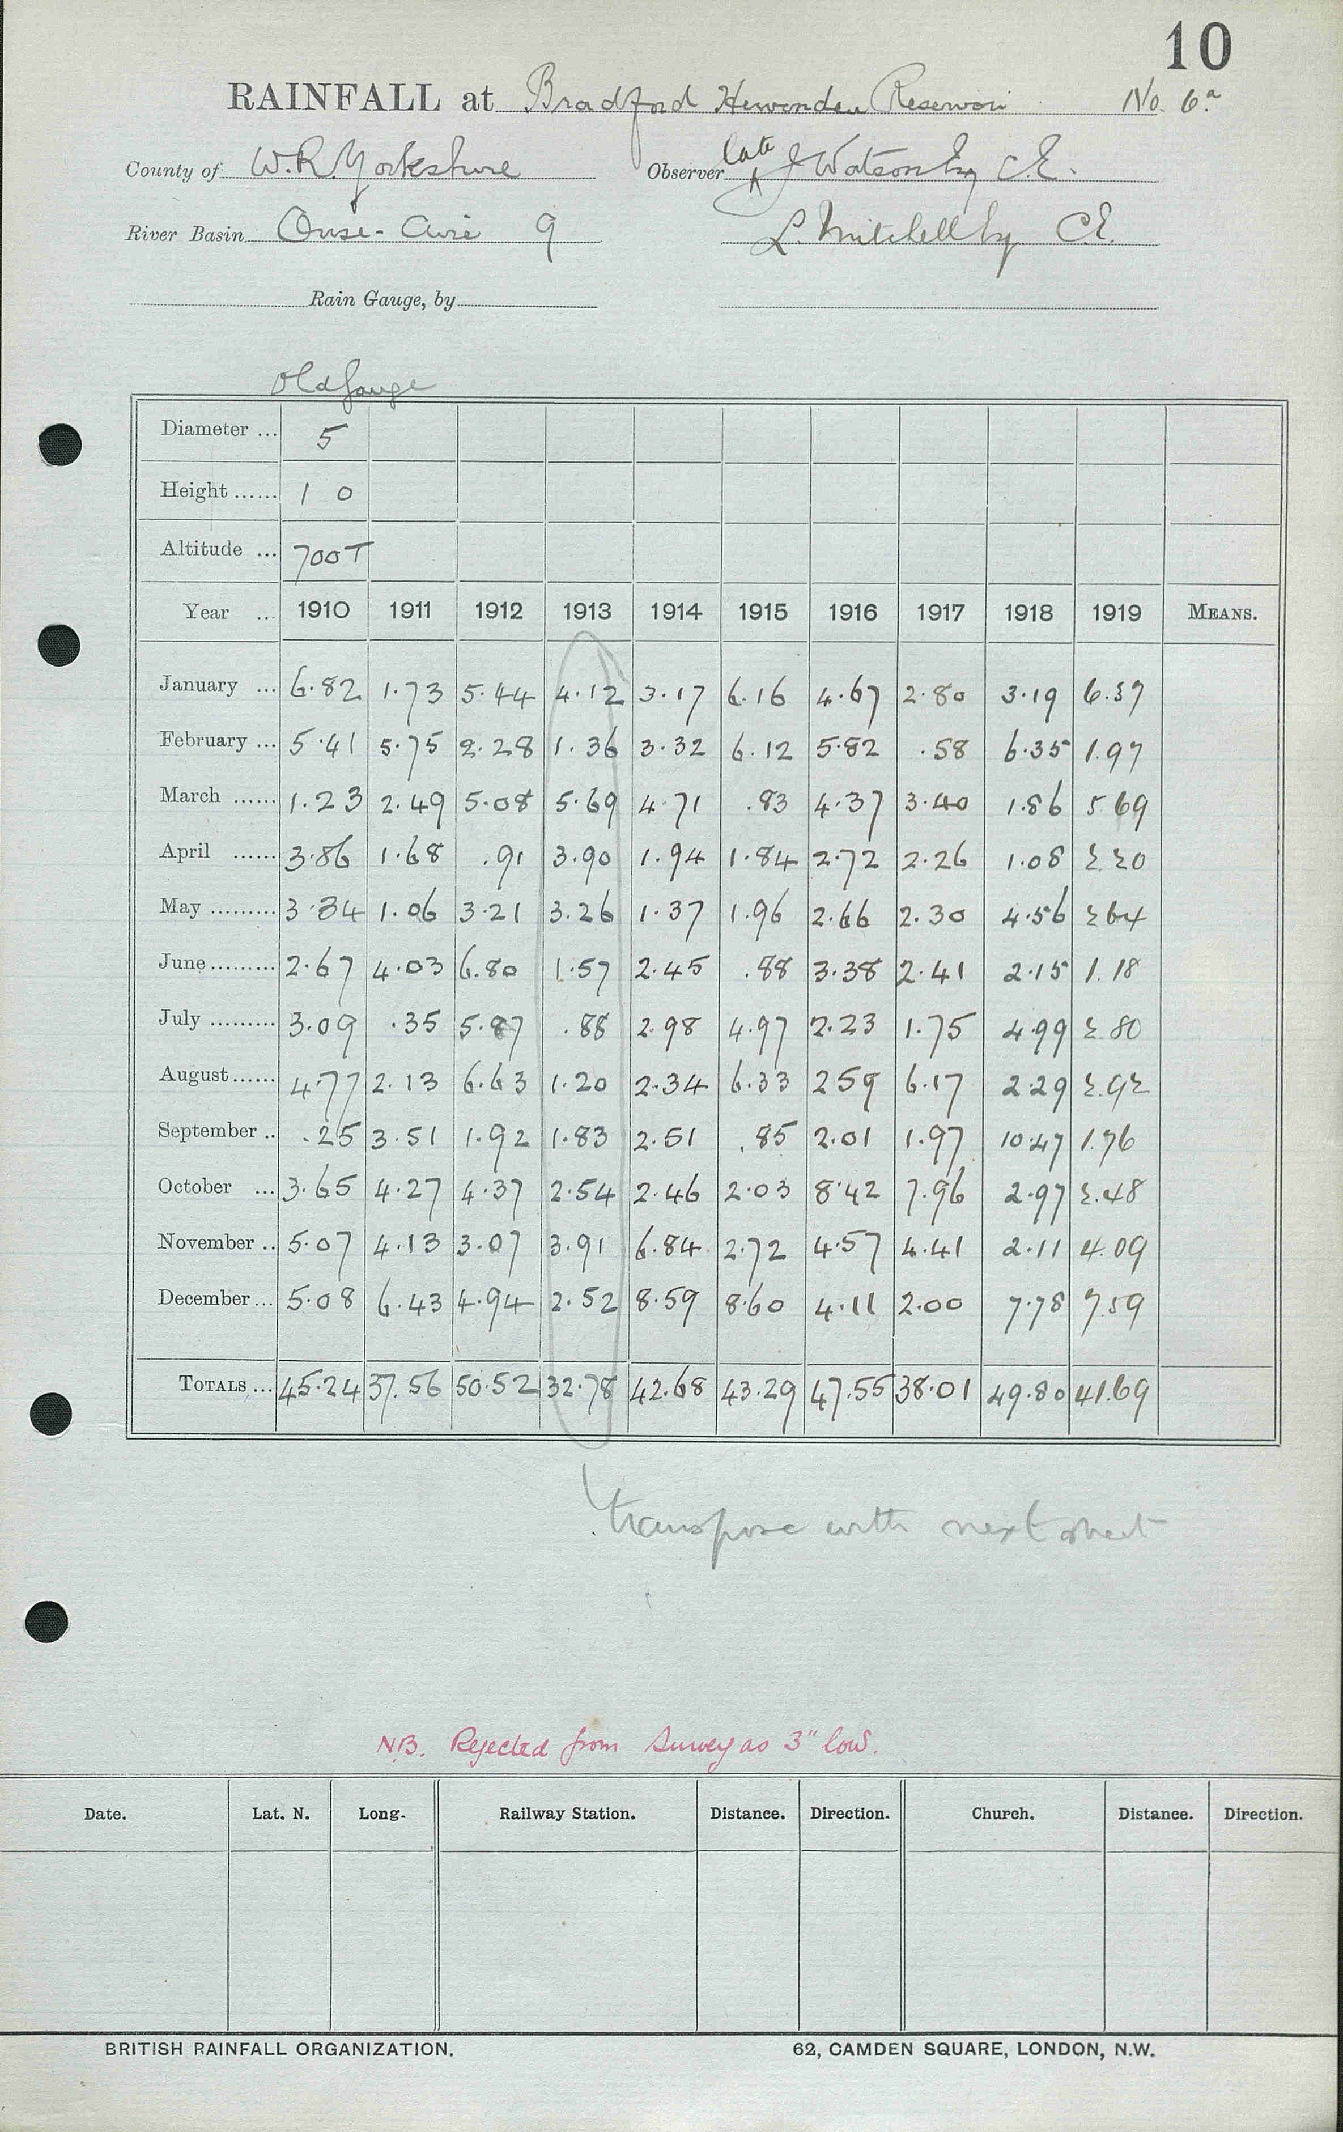 10
RAINFALL at Bradford Hewenden Reservoir No. 6a
County of W.R. Yorkshire Observer late J Watson Esq C.E.
River Basin Ouse-Aire 9 L. Mitchell Esq C.E.
Rain Gauge, by
Old Gauge
Diameter ... 5
Height ...... 1 0
Altitude ... 700 T
Year ... 1910 1911 1912 1913 1914 1915 1916 1917 1918 1919 MEANS.
January ... 6.82 1.73 5.44 4.12 3.17 6.16 4.67 2.80 3.19 6.37
February ... 5.41 5.75 2.28 1.36 3.32 6.12 5.82 .58 6.35 1.97
March ...... 1.23 2.49 5.08 5.69 4.71 .83 4.37 3.40 1.86 5.69
April ...... 3.86 1.68 .91 3.90 1.94 1.84 2.72 2.26 1.08 2.20
May ......... 3.34 1.06 3.21 3.26 1.37 1.96 2.66 2.30 4.56 2.64
June ......... 2.67 4.03 6.80 1.57 2.45 .88 3.38 2.41 2.15 1.18
July ......... 3.09 .35 5.87 .88 2.98 4.97 2.23 1.75 4.99 2.80
August ...... 4.77 2.13 6.63 1.20 2.34 6.33 2.59 6.17 2.29 2.92
September .. .25 3.51 1.92 1.83 2.51 .85 2.01 1.97 10.47 1.76
October ... 3.65 4.27 4.37 2.54 2.46 2.03 8.42 7.96 2.97 2.48
November .. 5.07 4.13 3.07 3.91 6.84 2.72 4.57 4.41 2.11 4.09
December ... 5.08 6.43 4.94 2.52 8.59 8.60 4.11 2.00 7.78 7.59
TOTALS ... 45.24 37.56 50.52 32.78 42.68 43.29 47.55 38.01 49.80 41.69
transpose with next sheet
NB. Rejected from Survey as 3" low.
Date. Lat. N. Long. Railway Station. Distance. Direction. Church. Distance. Direction.
BRITISH RAINFALL ORGANIZATION. 62, CAMDEN SQUARE, LONDON, N.W.